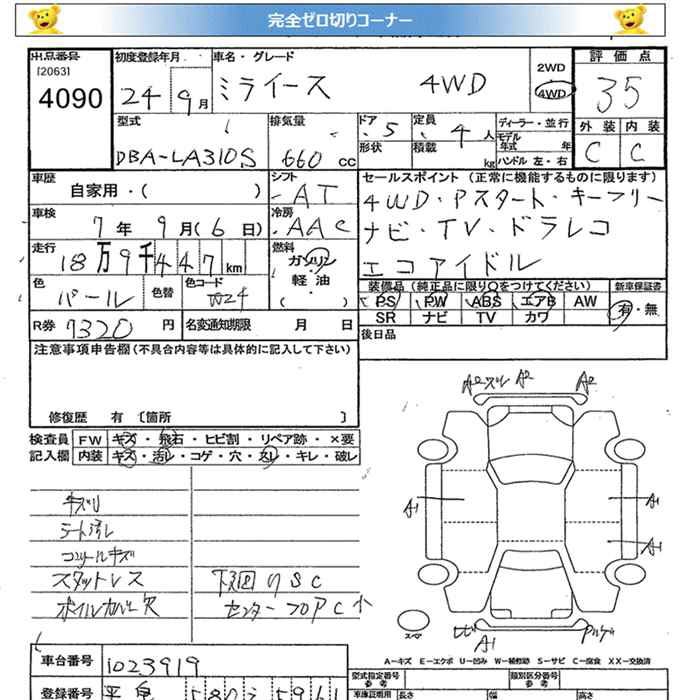 完全ゼロ切りコーナー
出品番号 初度登録年月 車名・グレード 評価点
[2063] 2WD
4090 24 9月 ミライース 4WD 4WD 35
型式 排気量 ドア 定員 ディーラー・並行 外装 内装
5 4人 モデル年式 年
DBA-LA310S 660cc 形状 積載 kg ハンドル 左・右 C C
車歴 シフト セールスポイント (正常に機能するものに限ります)
自家用・( ) AT 4WD・Pスタート・キーフリー
車検 冷房
7年9月(6日) AAC ナビ・TV・ドラレコ
走行 燃料
18万9千447km ガソリン・軽油 エコアイドル
色 色替 色コード 装備品 (純正品に限り○をつけてください) 新車保証書
パール W24 PS PW ABS エアB AW 有・無
SR ナビ TV カワ
R券 7320円 名変通知期限 月 日 後日品
注意事項申告欄 (不具合内容等は具体的に記入して下さい)
修復歴 有 〔箇所 〕
検査員 FW キズ・飛石・ヒビ割・リペア跡・×要
記入欄 内装 キズ・汚レ・コゲ・穴・スレ・キレ・破レ
A2 A2
A1 A1
A1
キズリ
シート汚レ
コンソールキズ
スタットレス 下回りSC
ホイルカバー欠 センターフロアC小
A1
A-キズ E-エクボ U-凹み W-補修跡 S-サビ C-腐食 XX-交換済
車台番号 1023919 型式指定番号 参考 類別区分番号 参考
登録番号 580 5961 車庫証明用 長さ 幅 高さ